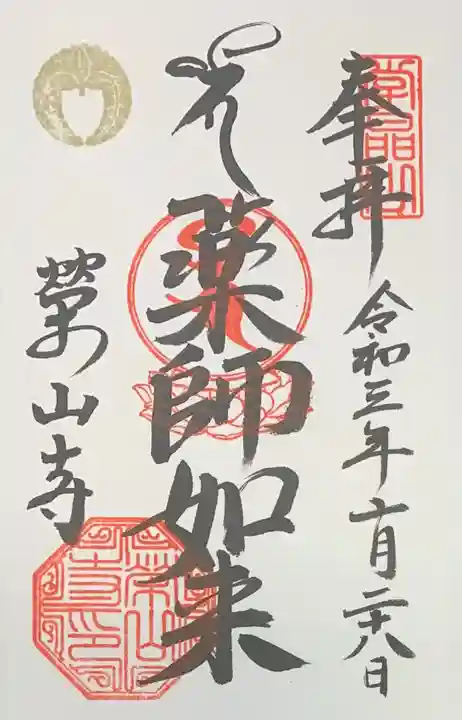 奉拝
令和三年十月二十八日
薬師如来
榮山寺